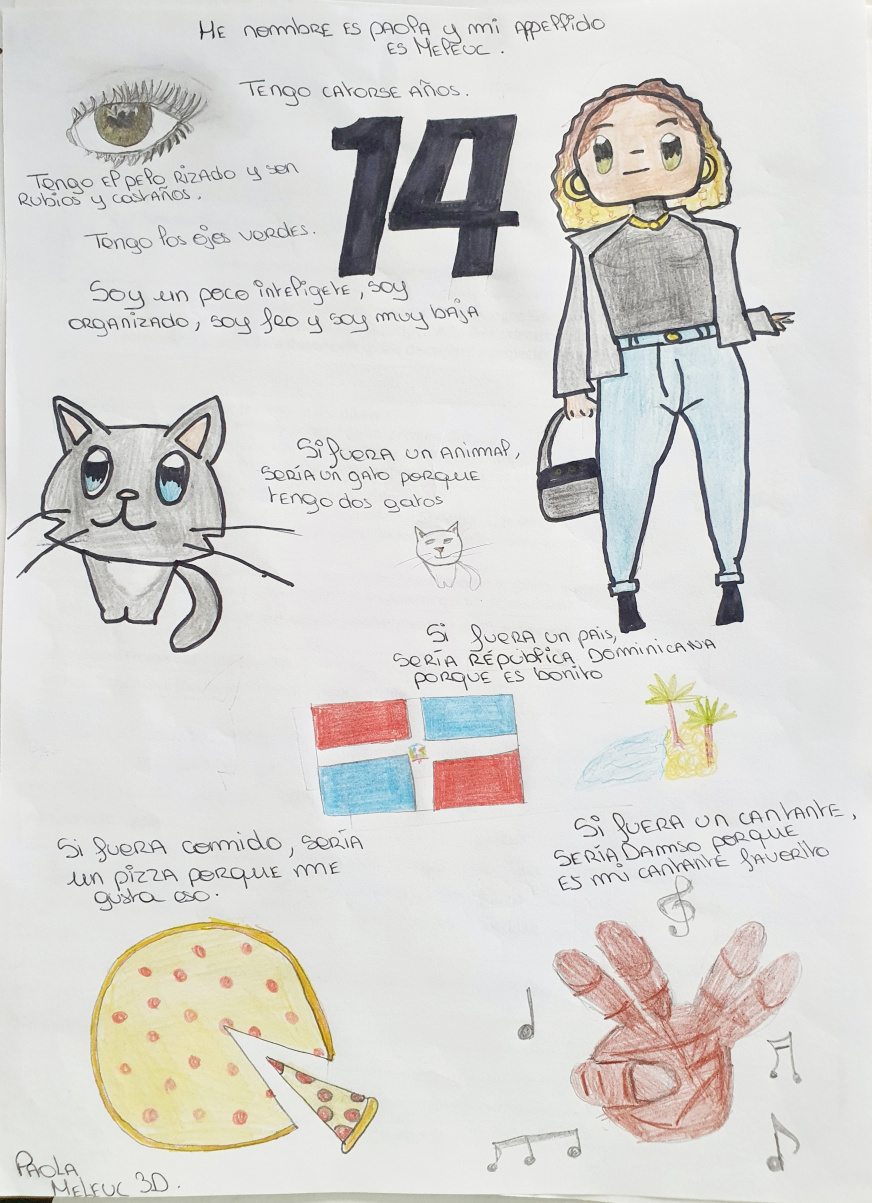 ME nombre ES PAOlA y mi Appellido
ES MELEUC.
TENGO CATORSE AÑOS.
14
Tengo El pElo RIZADO y son
RUBIOS y CASTAÑOS.
Tengo los ojes verdes.
Soy un poco inteligete, soy
ORGANIZADO, soy feo y soy muy baja
Si fuera un animal,
SERÍA un gato PORQUE
tengo dos gatos
Si fuera un pais,
SERÍA RÉPÚblicA DominicanA
PORQUE ES bonito
Si fuera comido, SERÍA
un pizza porque me
gusta eso.
Si fuera un cantante,
SERÍA DAMSO PORQUE
ES mi cantante favorito
PAOLA
MELEUC 3D.